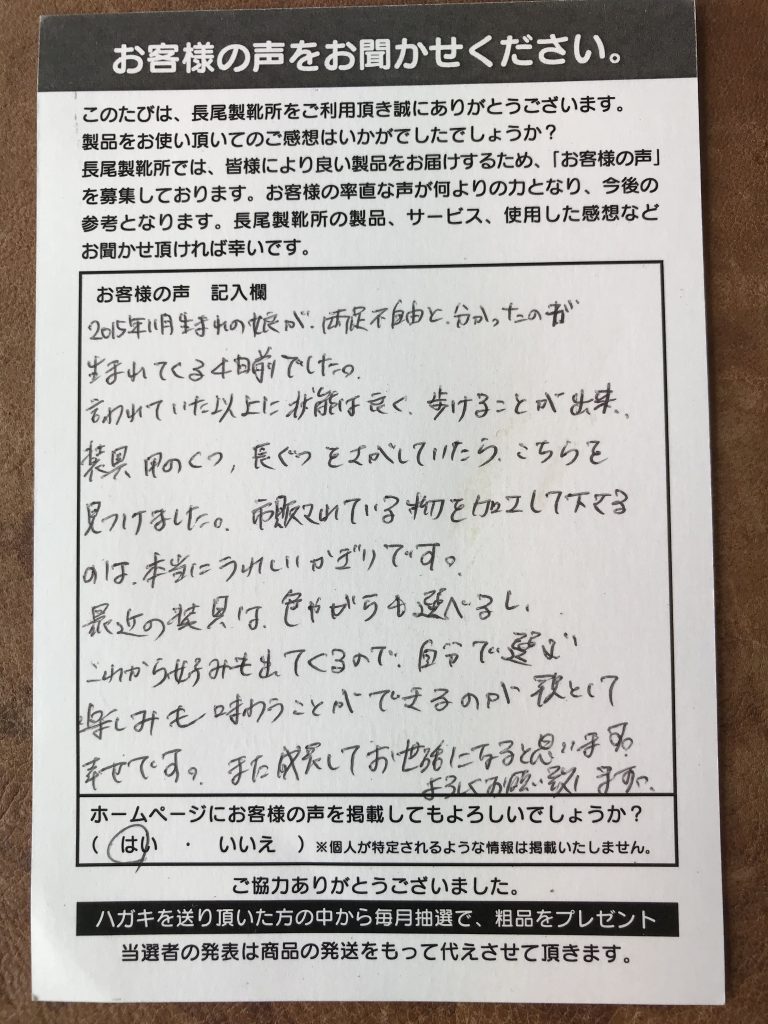 お客様の声をお聞かせください。
このたびは、長尾製靴所をご利用頂き誠にありがとうございます。
製品をお使い頂いてのご感想はいかがでしたでしょうか？
長尾製靴所では、皆様により良い製品をお届けするため、「お客様の声」
を募集しております。お客様の率直な声が何よりの力となり、今後の
参考となります。長尾製靴所の製品、サービス、使用した感想など
お聞かせ頂ければ幸いです。
お客様の声　記入欄
2015年11月生まれの娘が、両足不自由と、分かったのが
生まれてくる4日前でした。
言われていた以上に状態は良く、歩けることが出来、
装具用のくつ、長ぐつをさがしていたら、こちらを
見つけました。市販されている物を加工して下さる
のは、本当にうれしいかぎりです。
最近の装具は、色やがらも選べるし、
これから好みも出てくるので、自分で選ぶ
楽しみも味わうことができるのが親として
幸せです。また成長してお世話になると思いますが
よろしくお願い致します。
ホームページにお客様の声を掲載してもよろしいでしょうか？
（　はい　・　いいえ　）※個人が特定されるような情報は掲載いたしません。
ご協力ありがとうございました。
ハガキを送り頂いた方の中から毎月抽選で、粗品をプレゼント
当選者の発表は商品の発送をもって代えさせて頂きます。